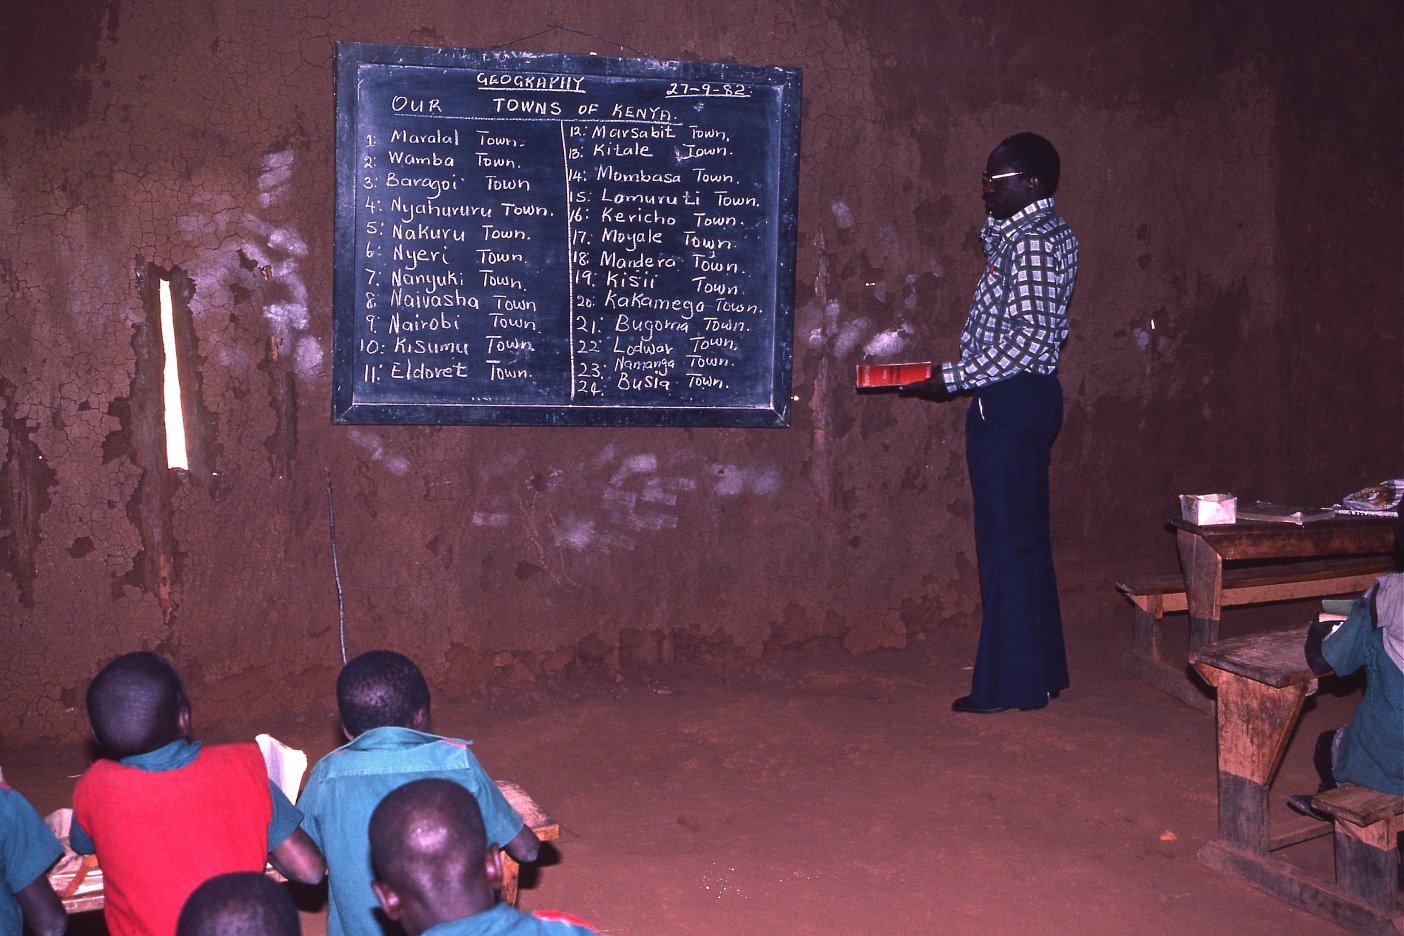 GEOGRAPHY 27-9-82.
OUR TOWNS OF KENYA.
1: Maralal Town.
2: Wamba Town.
3: Baragoi Town
4: Nyahururu Town.
5: Nakuru Town.
6: Nyeri Town.
7: Nanyuki Town.
8: Naivasha Town
9: Nairobi Town.
10: Kisumu Town.
11: Eldoret Town.
12: Marsabit Town,
13: Kitale Town.
14: Mombasa Town.
15: Lomuruti Town.
16: Kericho Town.
17: Moyale Town.
18: Mandera Town.
19: Kisii Town.
20: Kakamega Town.
21: Bugoma Town.
22: Lodwar Town,
23: Namanga Town.
24: Busia Town.